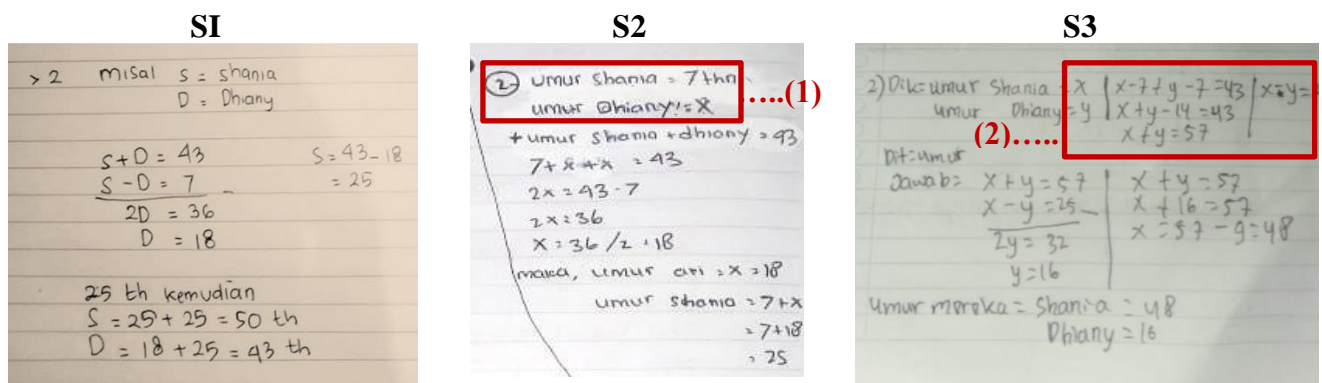 S1
> 2 misal S = shania
D = Dhany
S + D = 43
S - D = 7 -
2D = 36
D = 18
S = 43 - 18
= 25
25 th kemudian
S = 25 + 25 = 50 th
D = 18 + 25 = 43 th
S2
2. umur shania = 7 thn
umur Dhiany = x
.....(1)
+ umur shania + dhiany = 43
7 + x + x = 43
2x = 43 - 7
2x = 36
x = 36 / 2 = 18
maka, umur ari = x = 18
umur shania = 7 + x
= 7 + 18
= 25
S3
2) Dik = umur Shania = x
umur Dhiany = y
(2).....
x - 7 + y - 7 = 43
x + y - 14 = 43
x + y = 57
x - y =
Dit = umur
Jawab = x + y = 57
x - y = 25 -
2y = 32
y = 16
x + y = 57
x + 16 = 57
x = 57 - 9 = 48
Umur mereka = Shania = 48
Dhiany = 16